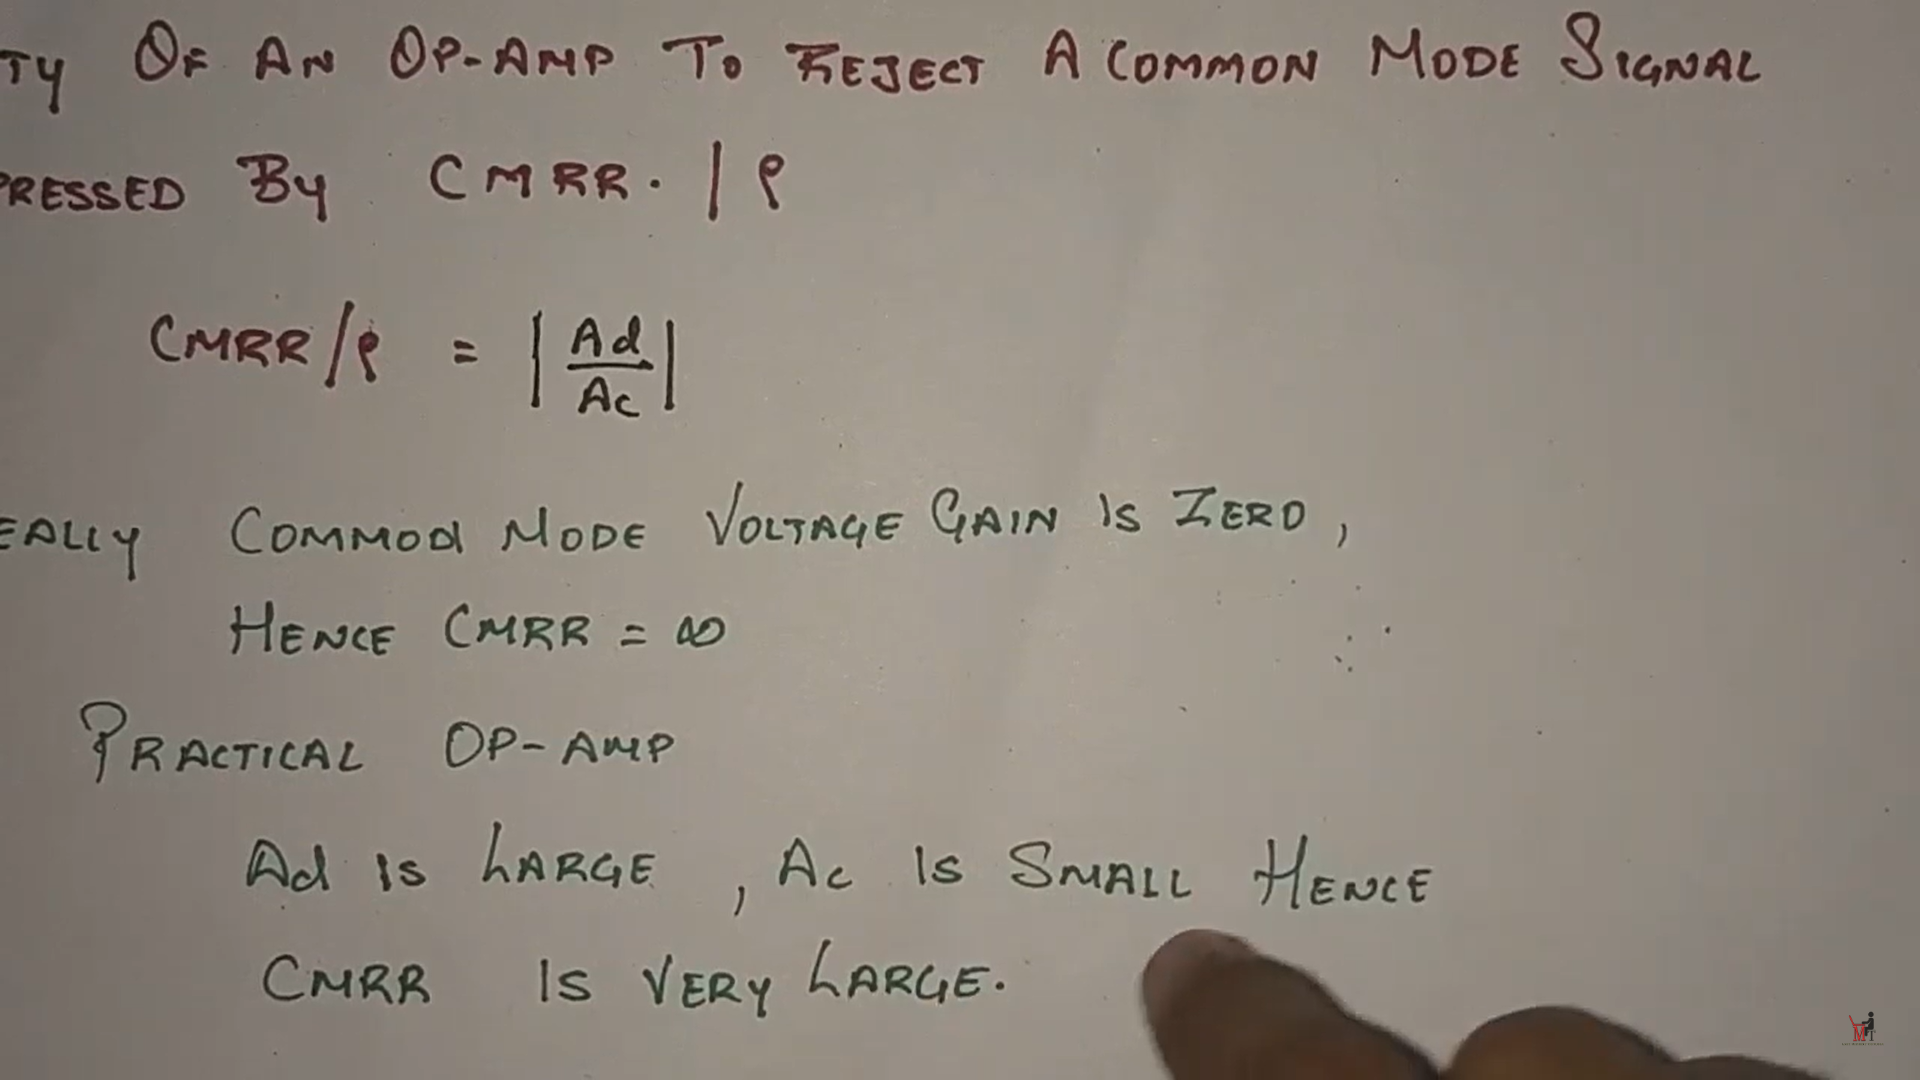 TY OF AN OP-AMP TO REJECT A COMMON MODE SIGNAL
PRESSED BY CMRR. / ρ
CMRR/ρ = |Ad/Ac|
EALLY COMMON MODE VOLTAGE GAIN IS ZERO,
HENCE CMRR = ∞
PRACTICAL OP-AMP
Ad IS LARGE , Ac IS SMALL HENCE
CMRR IS VERY LARGE.
MT